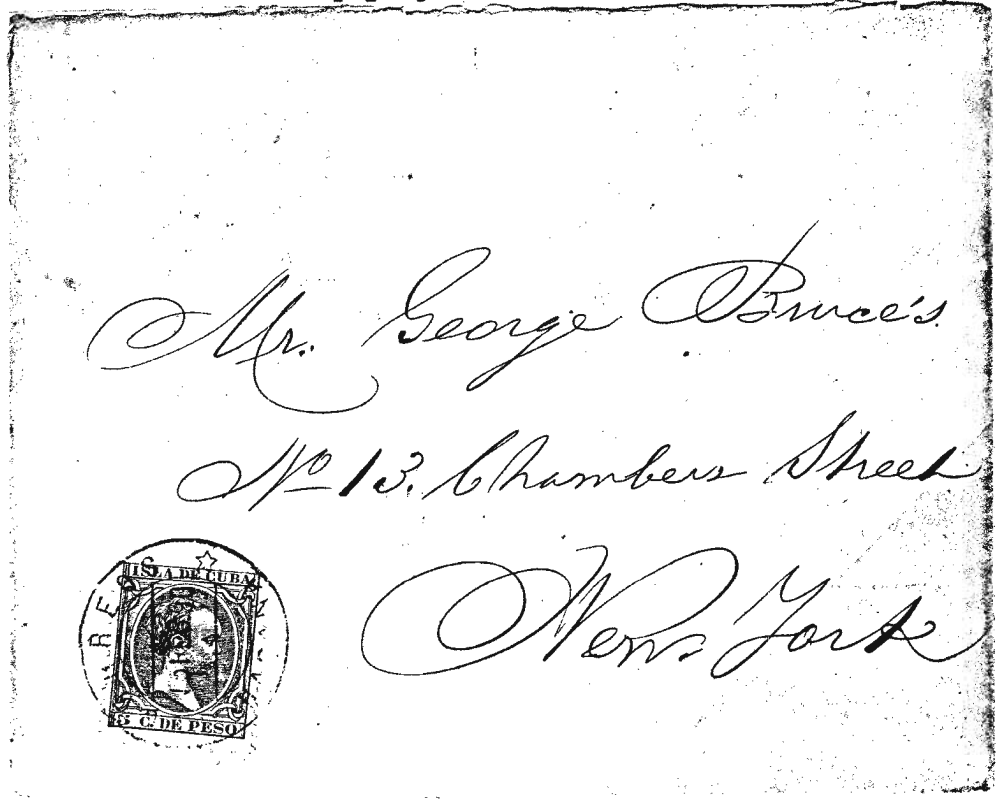 Mr. George Bruce's
No 13. Chambers Street
New York
ISLA DE CUBA
5 C. DE PESO